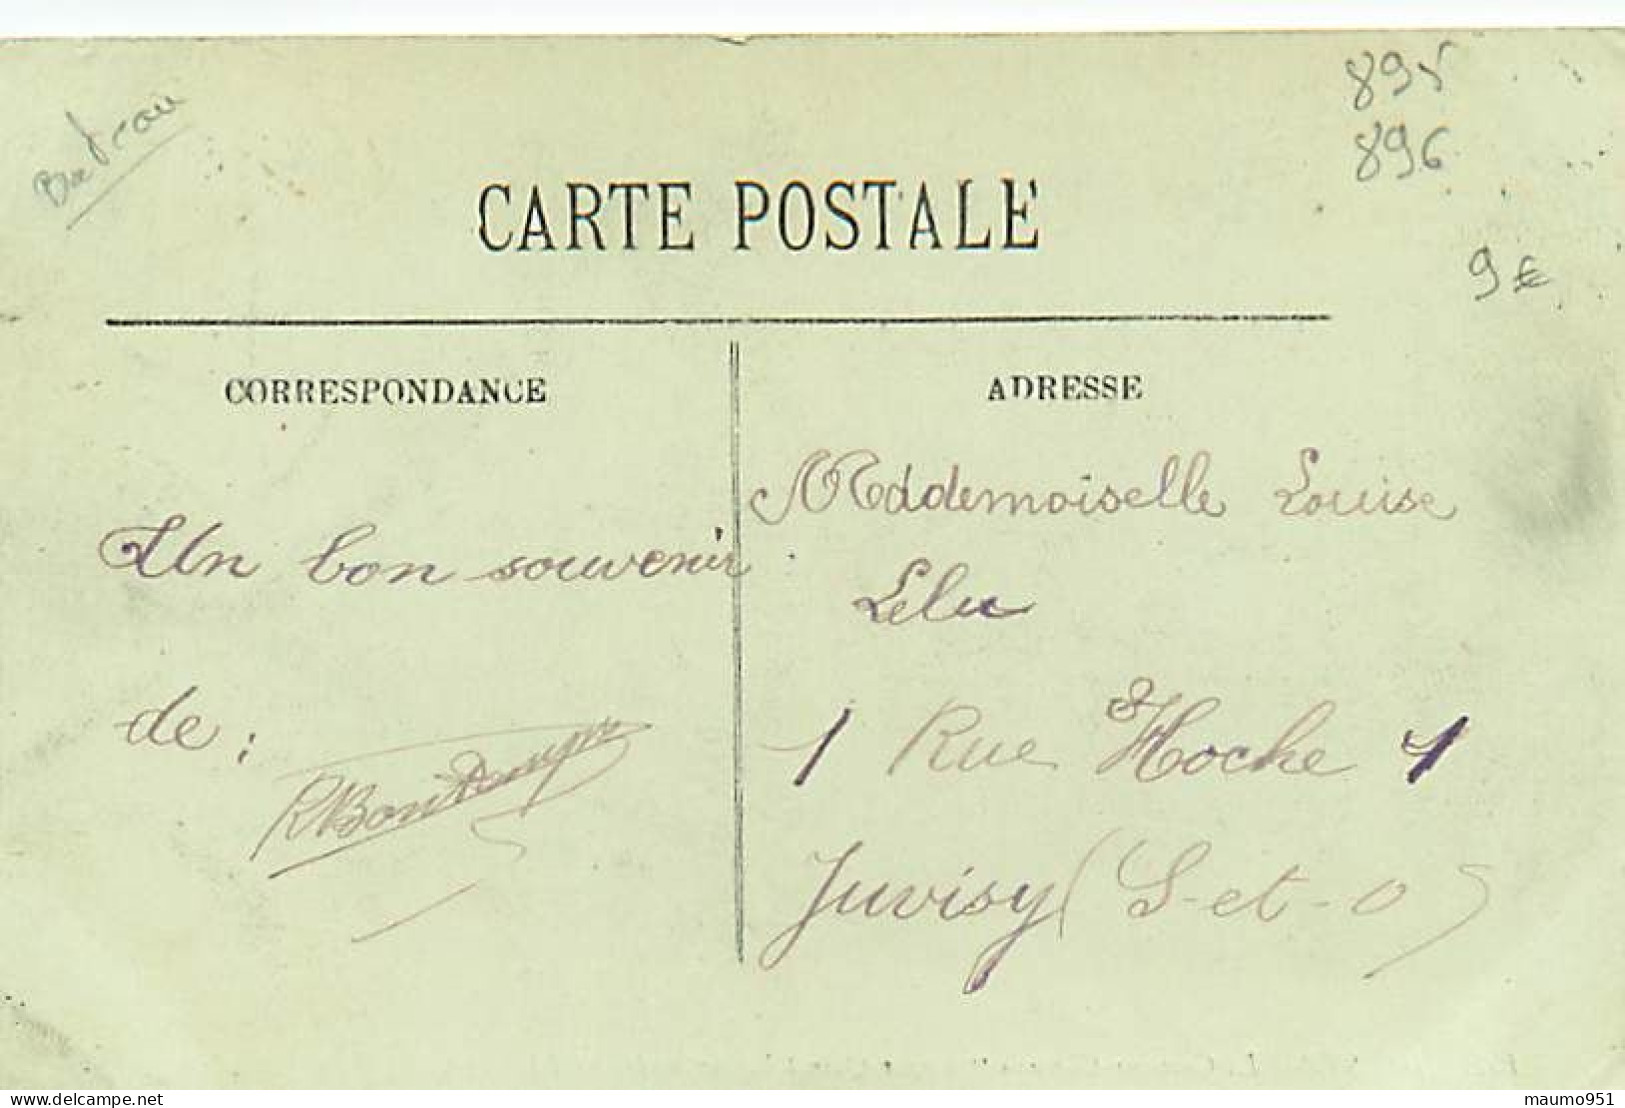 895
896
CARTE POSTALE
9 €
CORRESPONDANCE
Un bon souvenir
de :
ADRESSE
Maddemoiselle Louise
Lelu
1 Rue Hoche 1
Juvisy (S-et-O)
delcampe.net
maumo951